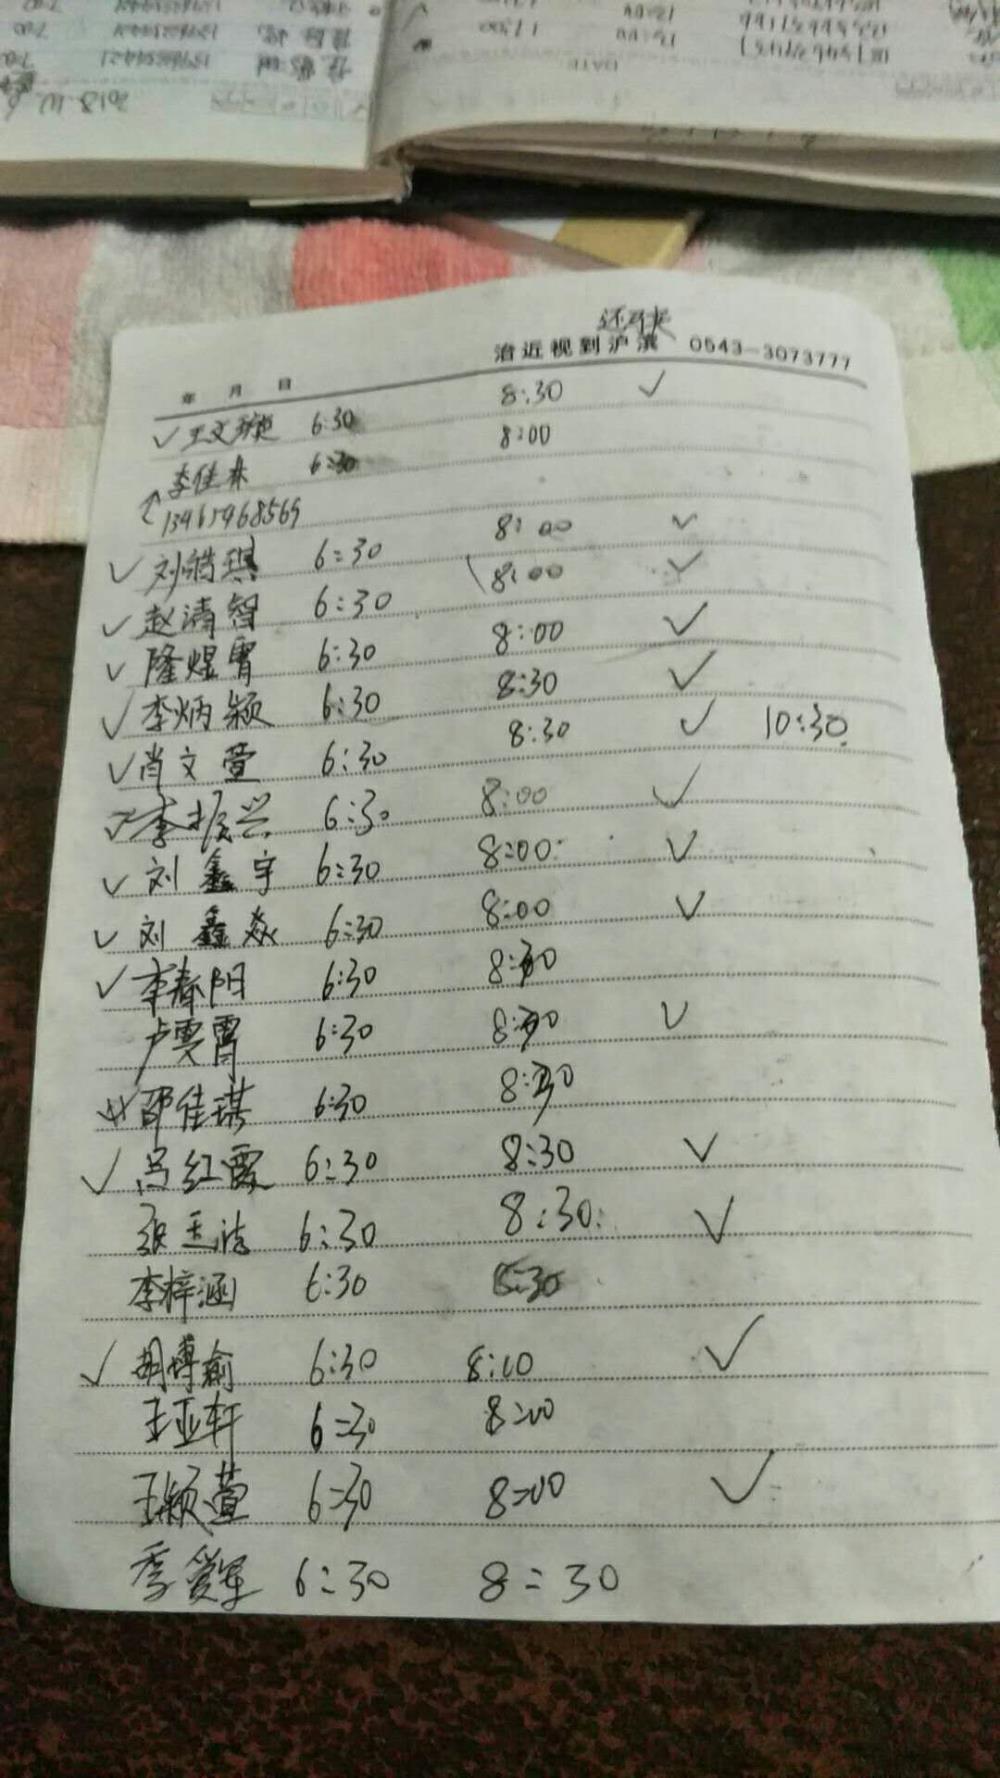 治近视到沪滨 0543-3073777
年 月 日
✓ 王文璇 6:30 8:30 ✓
李佳霖 6:30 8:00
13465468569
✓ 刘皓琪 6:30 8:00 ✓
✓ 赵清智 6:30 8:00 ✓
✓ 隆煜胄 6:30 8:00 ✓
✓ 李炳颖 6:30 8:30 ✓
✓ 肖文萱 6:30 8:30 ✓ 10:30
✓ 李振兴 6:30 8:00 ✓
✓ 刘鑫宇 6:30 8:00 ✓
✓ 刘鑫焱 6:30 8:00 ✓
✓ 李春阳 6:30 8:30
卢雯霄 6:30 8:30 ✓
邵佳琪 6:30 8:30
✓ 吕红霞 6:30 8:30 ✓
张玉洁 6:30 8:30 ✓
李梓涵 6:30 8:30
✓ 胡博瑜 6:30 8:00 ✓
王亚轩 6:30 8:00
王颖萱 6:30 8:00 ✓
季爱军 6:30 8:30